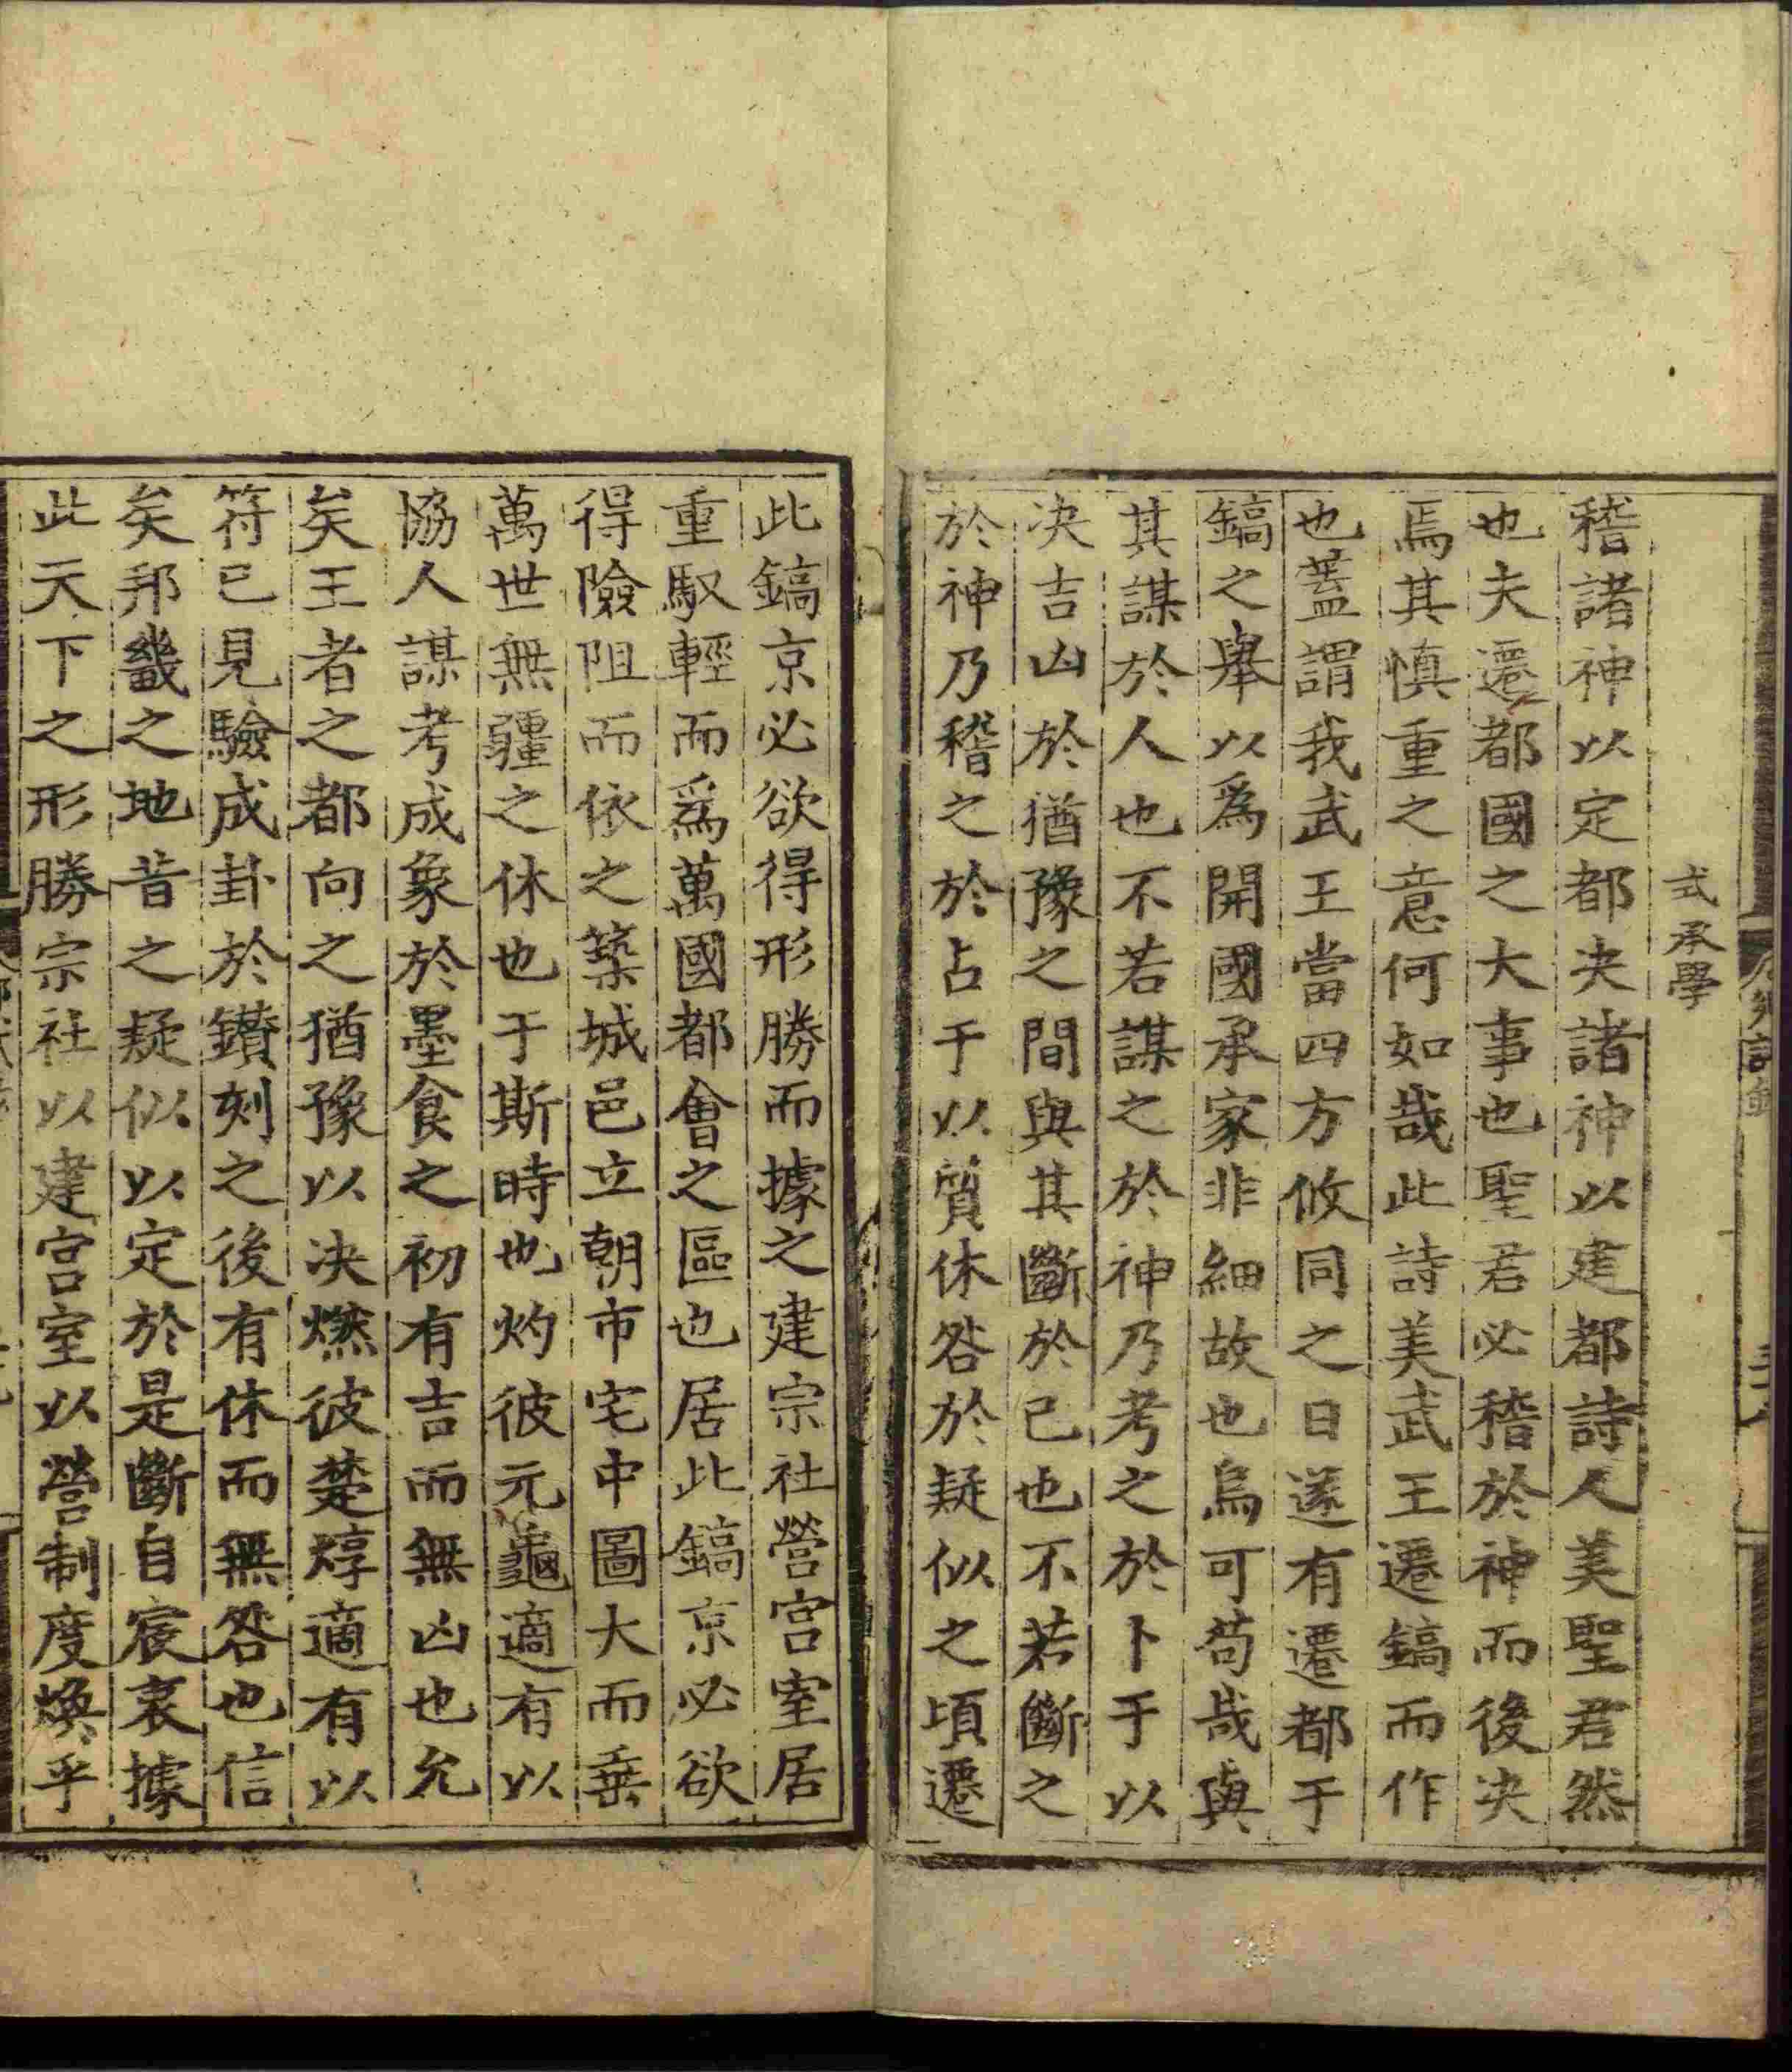 式承學
稽諸神以定都決諸神以建都詩人美聖君然
也夫遷都國之大事也聖君必稽於神而後決
焉其慎重之意何如哉此詩美武王遷鎬而作
也蓋謂我武王當四方攸同之日遂有遷都于
鎬之舉以爲開國承家非細故也烏可苟哉與
其謀於人也不若謀之於神乃考之於卜于以
决吉凶於猶豫之間與其斷於己也不若斷之
於神乃稽之於占于以質休咎於疑似之頃遷
此鎬京必欲得形勝而據之建宗社營宮室居
重馭輕而爲萬國都會之區也居此鎬京必欲
得險阻而依之築城邑立朝市宅中圖大而垂
萬世無疆之休也于斯時也灼彼元龜適有以
協人謀考成象於墨食之初有吉而無凶也允
矣王者之都向之猶豫以决燃彼楚焞適有以
符已見驗成卦於鑽刻之後有休而無咎也信
矣邦畿之地昔之疑似以定於是斷自宸衷據
此天下之形勝宗社以建宮室以營制度煥乎